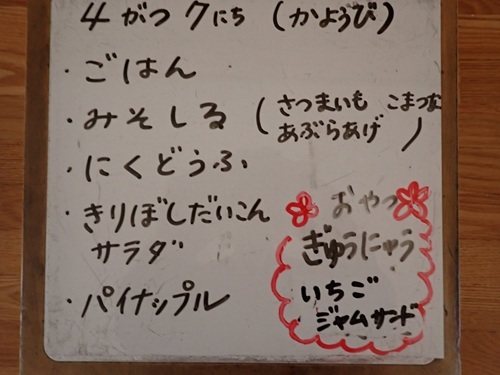 4がつ7にち (かようび)
・ごはん
・みそしる (さつまいも こまつな
あぶらあげ)
・にくどうふ
・きりぼしだいこん
サラダ
・パイナップル
おやつ
ぎゅうにゅう
いちご
ジャムサンド